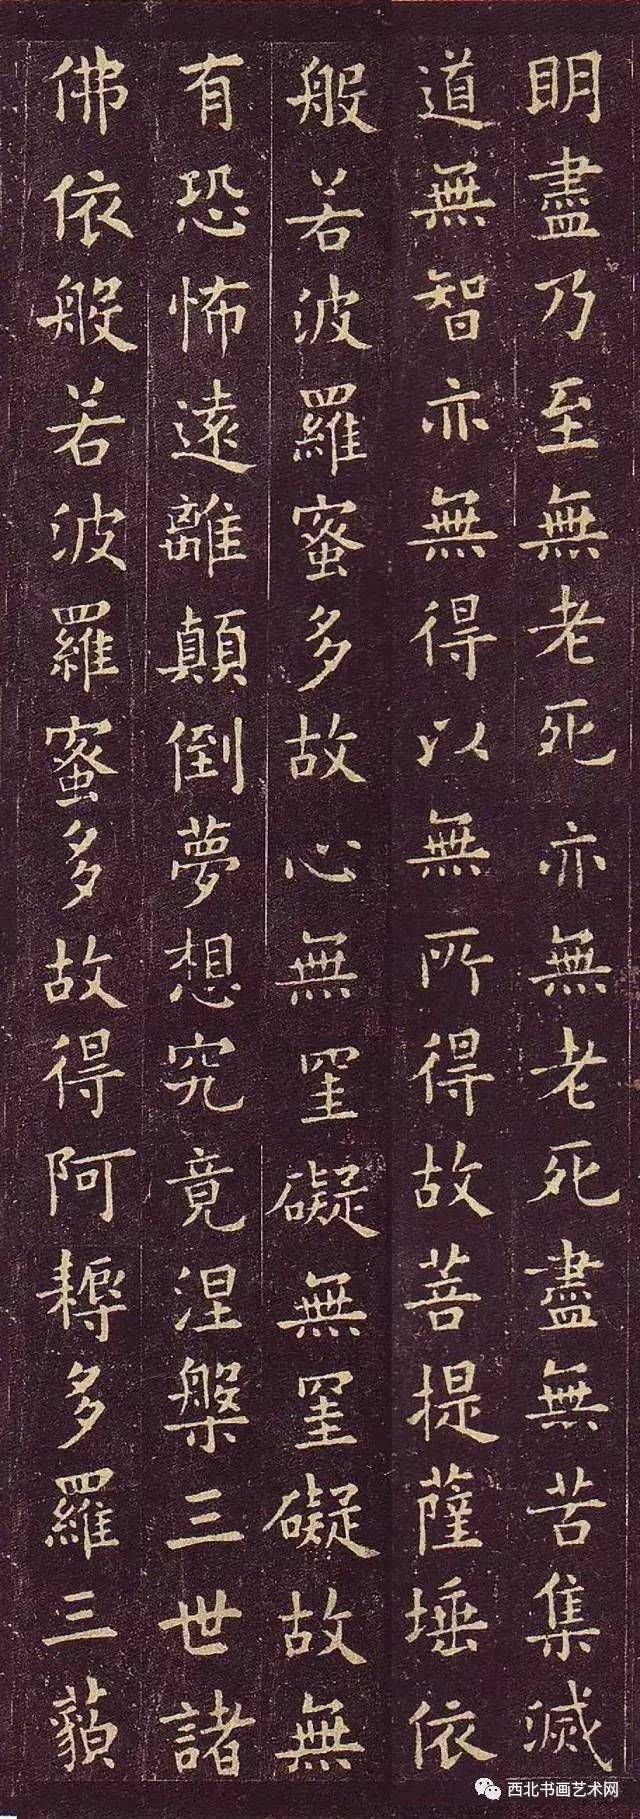 明盡乃至無老死亦無老死盡無苦集滅
道無智亦無得以無所得故菩提薩埵依
般若波羅蜜多故心無罣礙無罣礙故無
有恐怖遠離顛倒夢想究竟涅槃三世諸
佛依般若波羅蜜多故得阿耨多羅三藐
西北书画艺术网